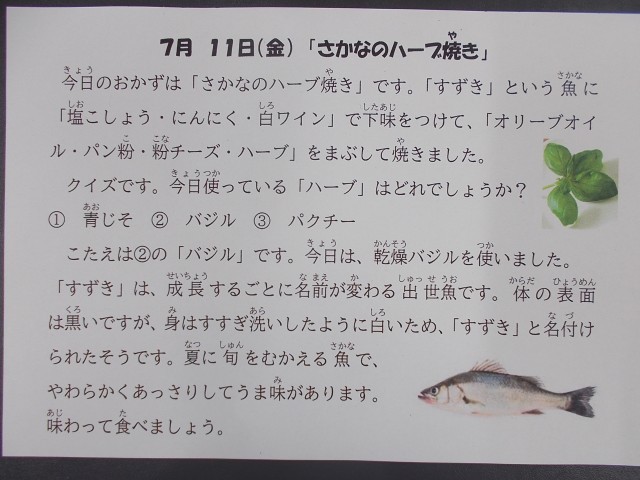 7月 11日(金)「さかなのハーブ焼き」
今日のおかずは「さかなのハーブ焼き」です。「すずき」という魚に
「塩こしょう・にんにく・白ワイン」で下味をつけて、「オリーブオイ
ル・パン粉・粉チーズ・ハーブ」をまぶして焼きました。
クイズです。今日使っている「ハーブ」はどれでしょうか?
① 青じそ ② バジル ③ パクチー
こたえは②の「バジル」です。今日は、乾燥バジルを使いました。
「すずき」は、成長するごとに名前が変わる出世魚です。体の表面
は黒いですが、身はすすぎ洗いしたように白いため、「すずき」と名付け
られたそうです。夏に旬をむかえる魚で、
やわらかくあっさりしてうま味があります。
味わって食べましょう。